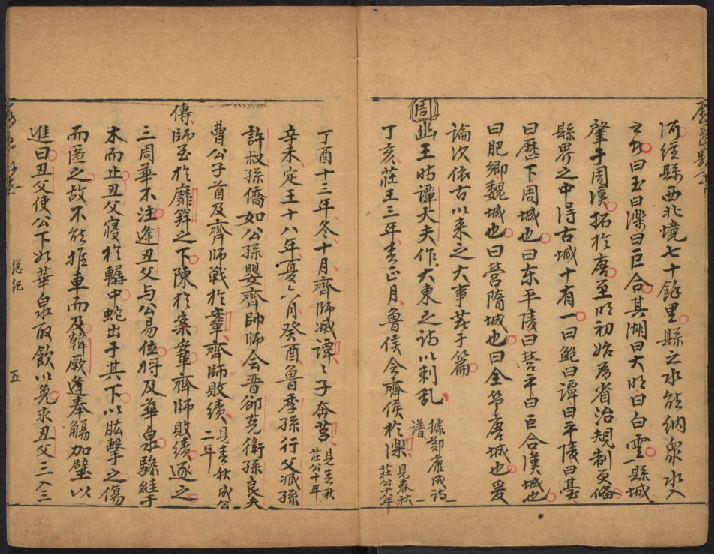 河經縣西北境七十餘里縣之水能納衆水入
之者曰玉曰濼曰巨合其湖曰大明曰白雲縣城
肇于周漢拓於唐至明初始為省治規制更備
縣界之中得古城十有一曰鮑曰譚曰平陵曰臺
曰歷下周城也曰東平陵曰營平曰巨合漢城也
曰肥鄉魏城也曰營隋城也曰全節唐城也爰
論次依古以來之大事著于篇
周幽王時譚大夫作大東之詩以刺亂 據鄭康成詩譜
丁亥莊王三年春正月魯侯會齊侯於濼 見春秋莊公十八年
丁酉十三年冬十月齊師滅譚譚子奔莒 見春秋莊公十年
辛未定王十八年夏六月癸酉魯季孫行父臧孫
許叔孫僑如公孫嬰齊帥師會晉郤克衛孫良夫
曹公子首及齊師戰於鞌齊師敗績 見春秋成公二年
傳師至於靡筓之下陳於鞌齊師敗績逐之
三周華不注逢丑父與公易位將及華泉驂絓于
木而止丑父寢於轏中蛇出于其下以肱擊之傷
而匿之故不能推車而及韓厥逢奉觴加璧以
進曰丑父使公下如華泉取飲以免求丑父三入三
總紀
五